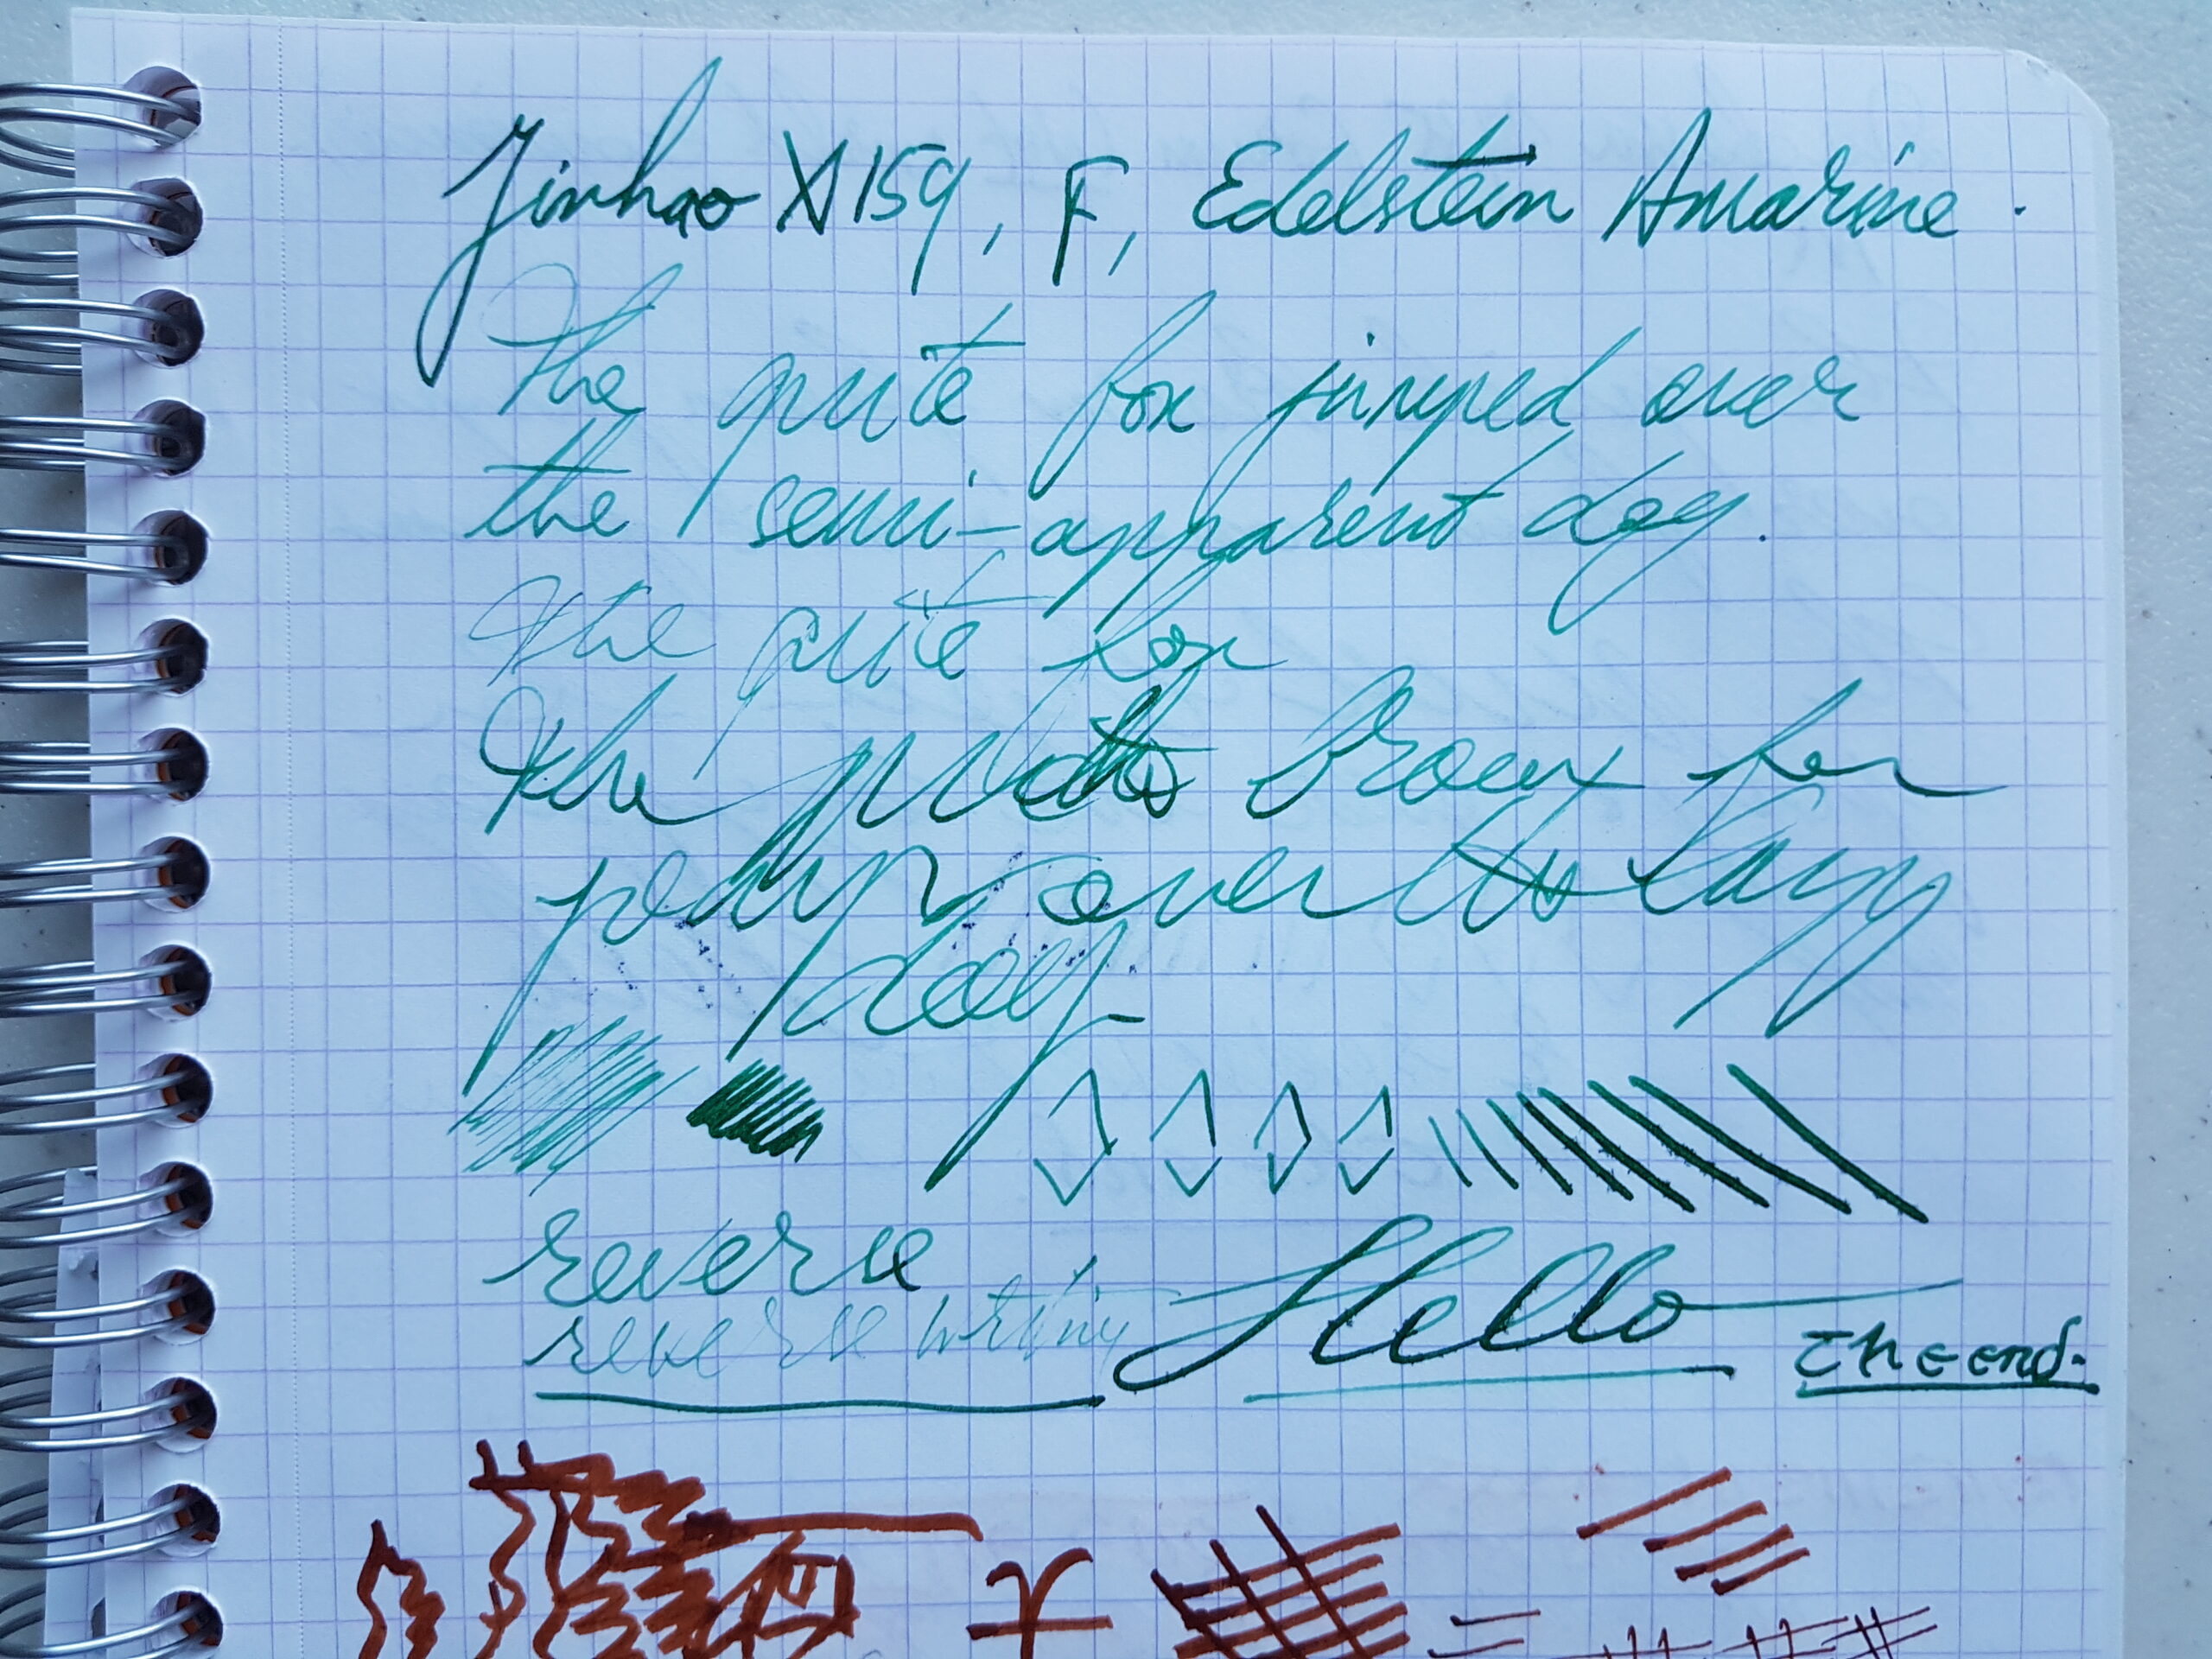 Jinhao X159, F, Edelstein Amarine.
The quite fox jumped over
the semi-apparent dog.
the quite fox
the brown fox
over the lazy
dog.
reverse
reverse writing Hello the end.